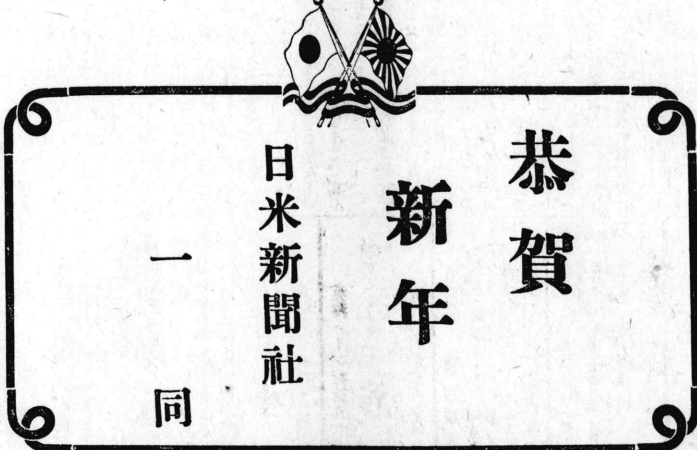 恭賀
新年
日米新聞社
一同